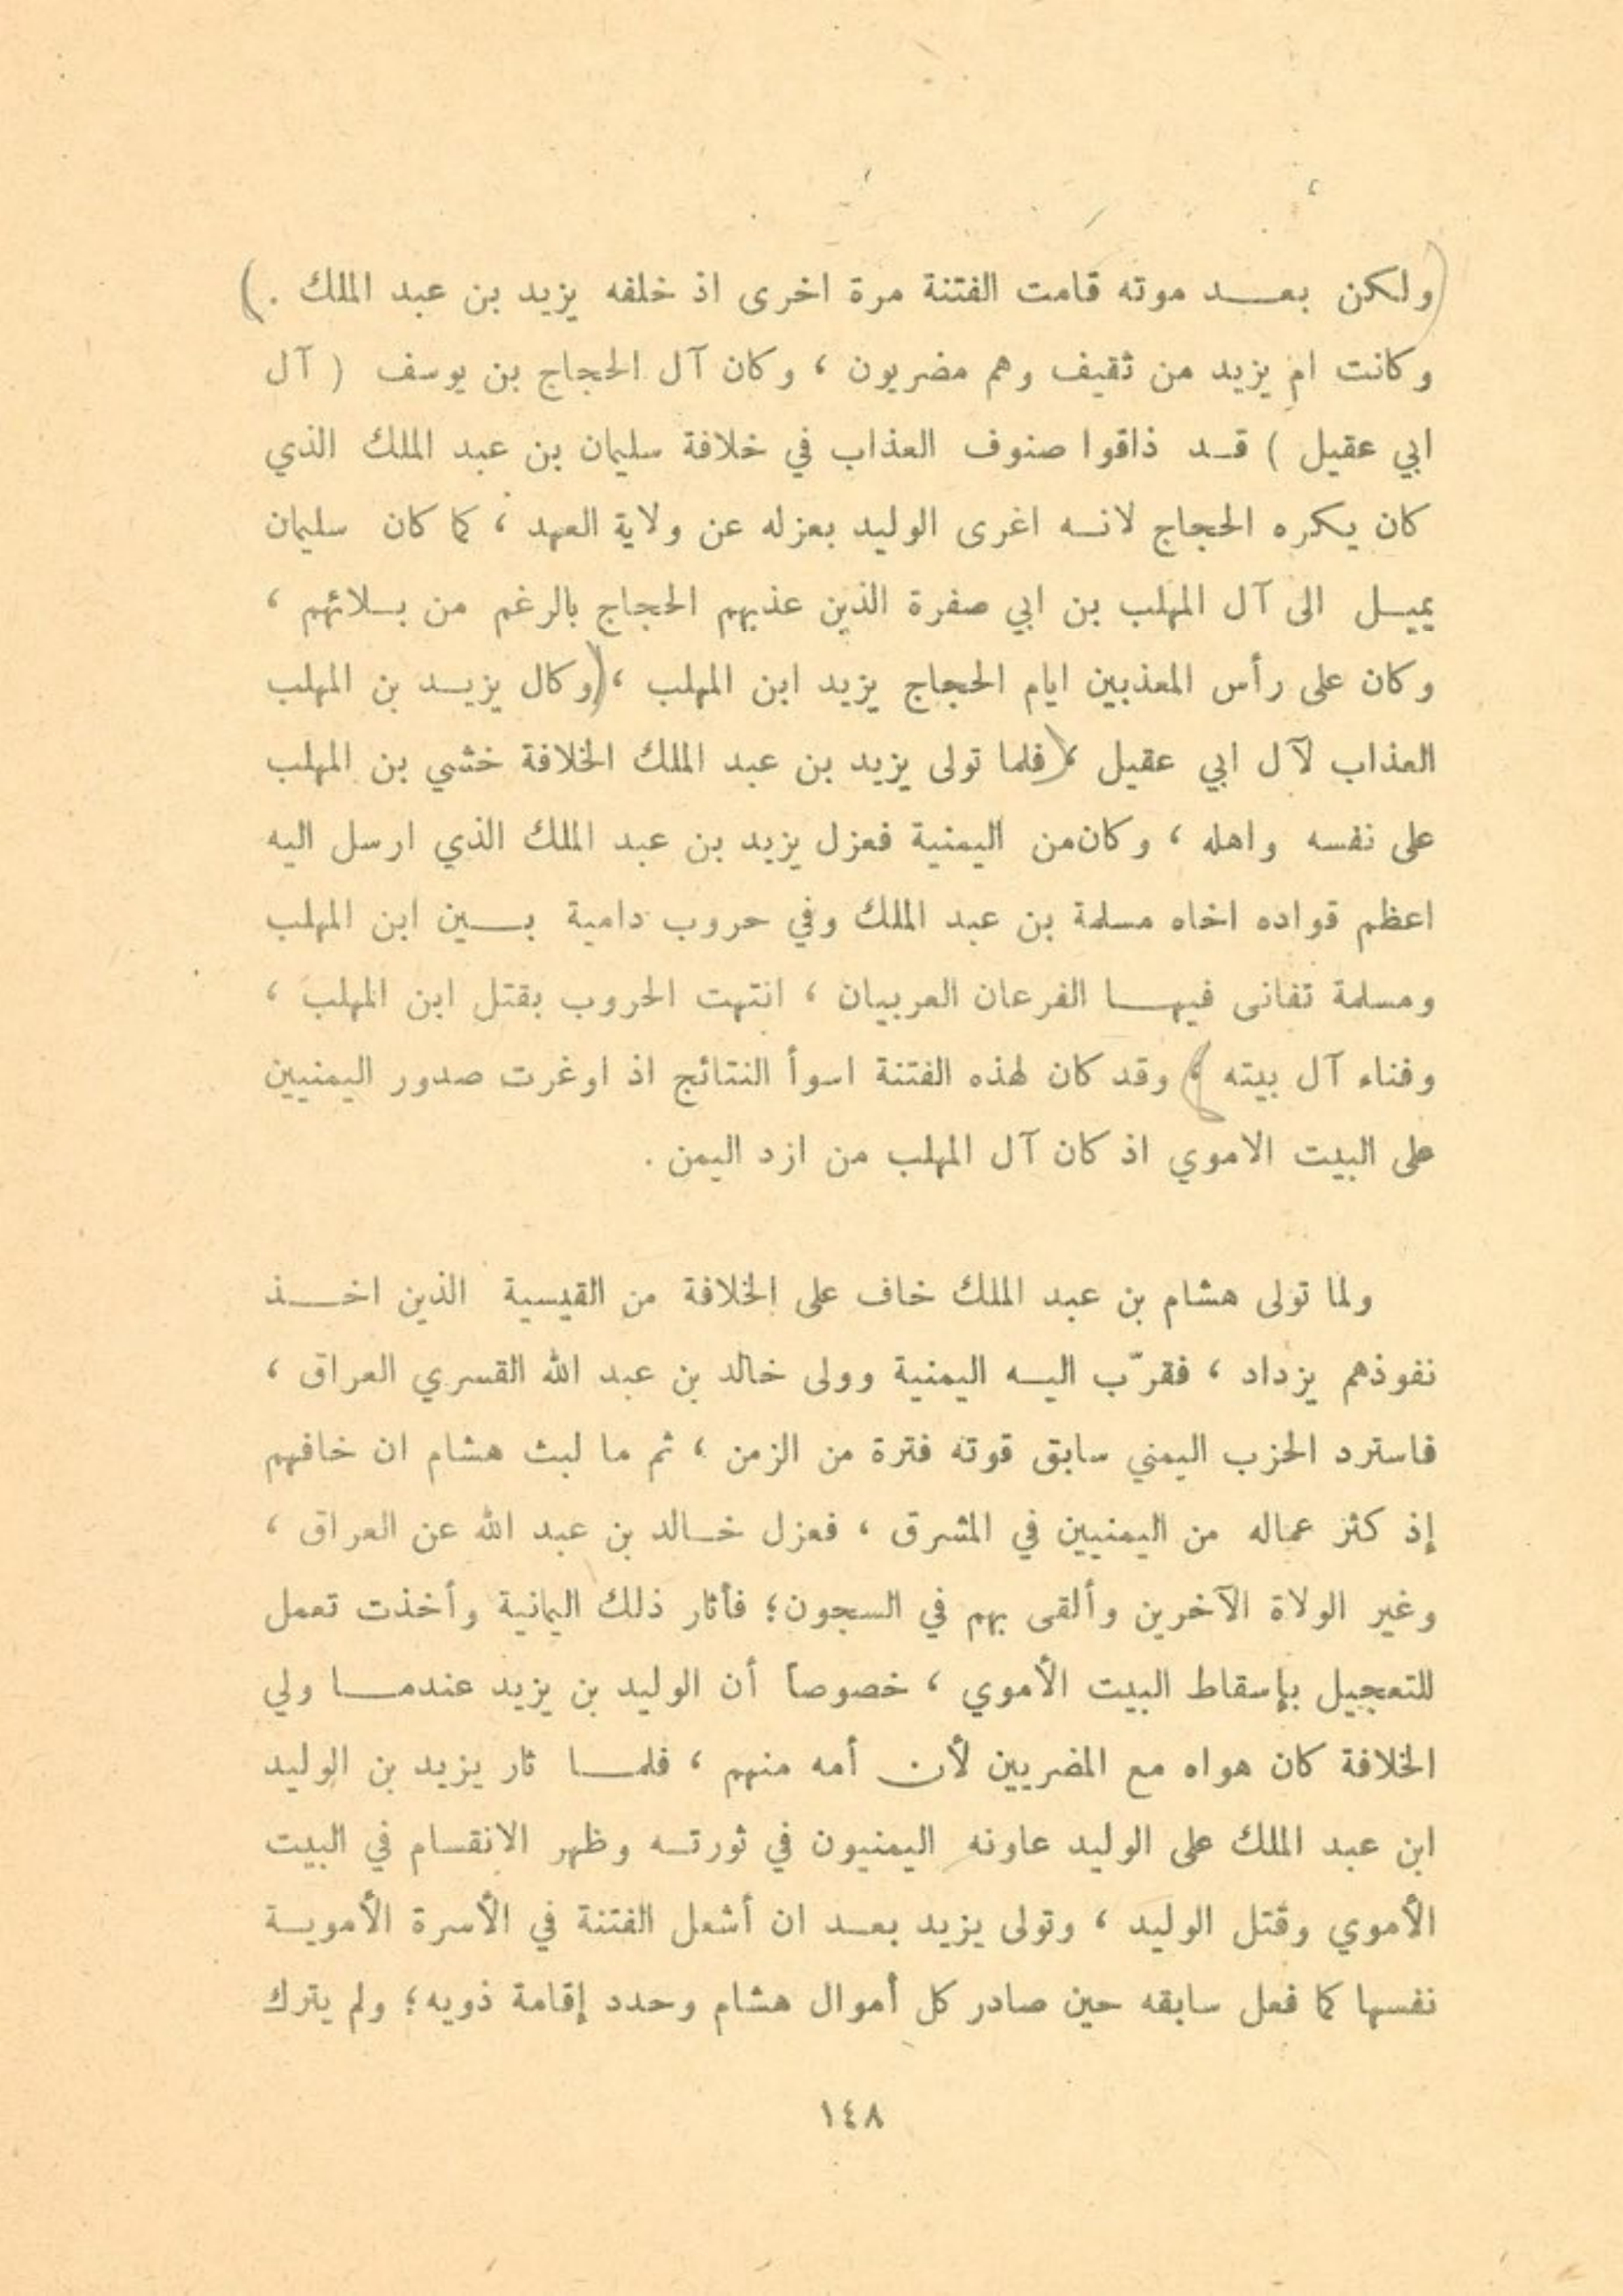 ولكن بعد موته قامت الفتنة مرة اخرى اذ خلفه يزيد بن عبد الملك .
وكانت ام يزيد من ثقيف وهم مضريون ، وكان آل الحجاج بن يوسف ( آل
ابي عقيل ) قد ذاقوا صنوف العذاب في خلافة سليمان بن عبد الملك الذي
كان يكره الحجاج لانه اغرى الوليد بعزله عن ولاية العهد ، كما كان سليمان
يميل الى آل المهلب بن ابي صفرة الذين عذبهم الحجاج بالرغم من بلائهم ،
وكان على رأس المعذبين ايام الحجاج يزيد ابن المهلب ، وكال يزيد بن المهلب
العذاب لآل ابي عقيل ، فلما تولى يزيد بن عبد الملك الخلافة خشي بن المهلب
على نفسه واهله ، وكان من اليمنية فعزل يزيد بن عبد الملك الذي ارسل اليه
اعظم قواده اخاه مسلمة بن عبد الملك وفي حروب دامية بين ابن المهلب
ومسلمة تفانى فيها الفرعان العربيان ، انتهت الحروب بقتل ابن المهلب ،
وفناء آل بيته ، وقد كان لهذه الفتنة اسوأ النتائج اذ اوغرت صدور اليمنيين
على البيت الاموي اذ كان آل المهلب من ازد اليمن .
ولما تولى هشام بن عبد الملك خاف على الخلافة من القيسية الذين اخذ
نفوذهم يزداد ، فقرّب اليه اليمنية وولى خالد بن عبد الله القسري العراق ،
فاسترد الحزب اليمني سابق قوته فترة من الزمن ، ثم ما لبث هشام ان خافهم
إذ كثر عماله من اليمنيين في المشرق ، فعزل خالد بن عبد الله عن العراق ،
وغير الولاة الآخرين وألقى بهم في السجون؛ فأثار ذلك اليمانية وأخذت تعمل
للتعجيل بإسقاط البيت الأموي ، خصوصاً أن الوليد بن يزيد عندما ولي
الخلافة كان هواه مع المضريين لأن أمه منهم ، فلما ثار يزيد بن الوليد
ابن عبد الملك على الوليد عاونه اليمنيون في ثورته وظهر الانقسام في البيت
الأموي وقتل الوليد ، وتولى يزيد بعد ان أشعل الفتنة في الأسرة الأموية
نفسها كما فعل سابقه حين صادر كل أموال هشام وحدد إقامة ذويه؛ ولم يترك
١٤٨